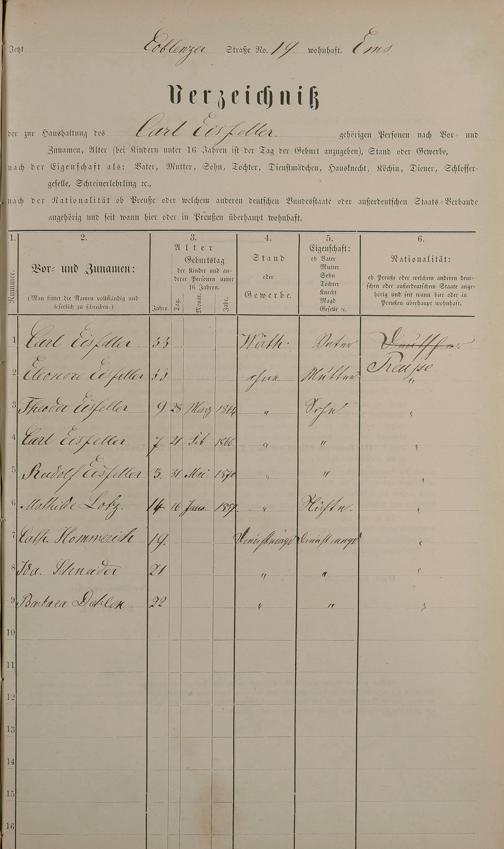 Jetzt Coblenzer Straße No. 19. wohnhaft. Ems
Verzeichniß
der zur Haushaltung des Carl Eisfeller gehörigen Personen nach Vor- und
Zunamen, Alter (bei Kindern unter 16 Jahren ist der Tag der Geburt anzugeben), Stand oder Gewerbe,
nach der Eigenschaft als: Vater, Mutter, Sohn, Tochter, Dienstmädchen, Hausknecht, Köchin, Diener, Schlosser-
geselle, Schreinerlehrling ꝛc.,
nach der Nationalität ob Preuße oder welchem anderen deutschen Bundesstaate oder außerdeutschen Staats-Verbande
angehörig und seit wann hier oder in Preußen überhaupt wohnhaft.
1. 2. 3. 4. 5. 6.
Nummer.
Vor- und Zunamen:
(Man bittet die Namen vollständig und
leserlich zu schreiben.)
Alter
Geburtstag
der Kinder und an-
derer Personen unter
16 Jahren.
Jahre Tag. Monat. Jahr.
Stand
oder
Gewerbe.
Eigenschaft:
ob Vater
Mutter
Sohn
Tochter
Knecht
Magd
Geselle ꝛc.
Nationalität:
ob Preuße oder welchem anderen deut-
schen oder außerdeutschen Staate ange-
hörig und seit wann hier oder in
Preußen überhaupt wohnhaft.
1 Carl Eisfeller 33 Wirth. Vater
2 Eleonora Eisfeller 33 ohne Mutter Preuße
3 Theodor Eisfeller 9 28 März 1864 " Sohn "
4 Carl Eisfeller 7 21 Feb 1866 " " "
5 Rudolf Eisfeller 3 31 Mai 1870 " " "
6 Mathilde 14 16 Janu. 1859 " "
7 Cath. Hommerich 19. Dienstmagd Dienstmagd "
8 21 " " "
9 Barbara 22 " " "
10
11
12
13
14
15
16